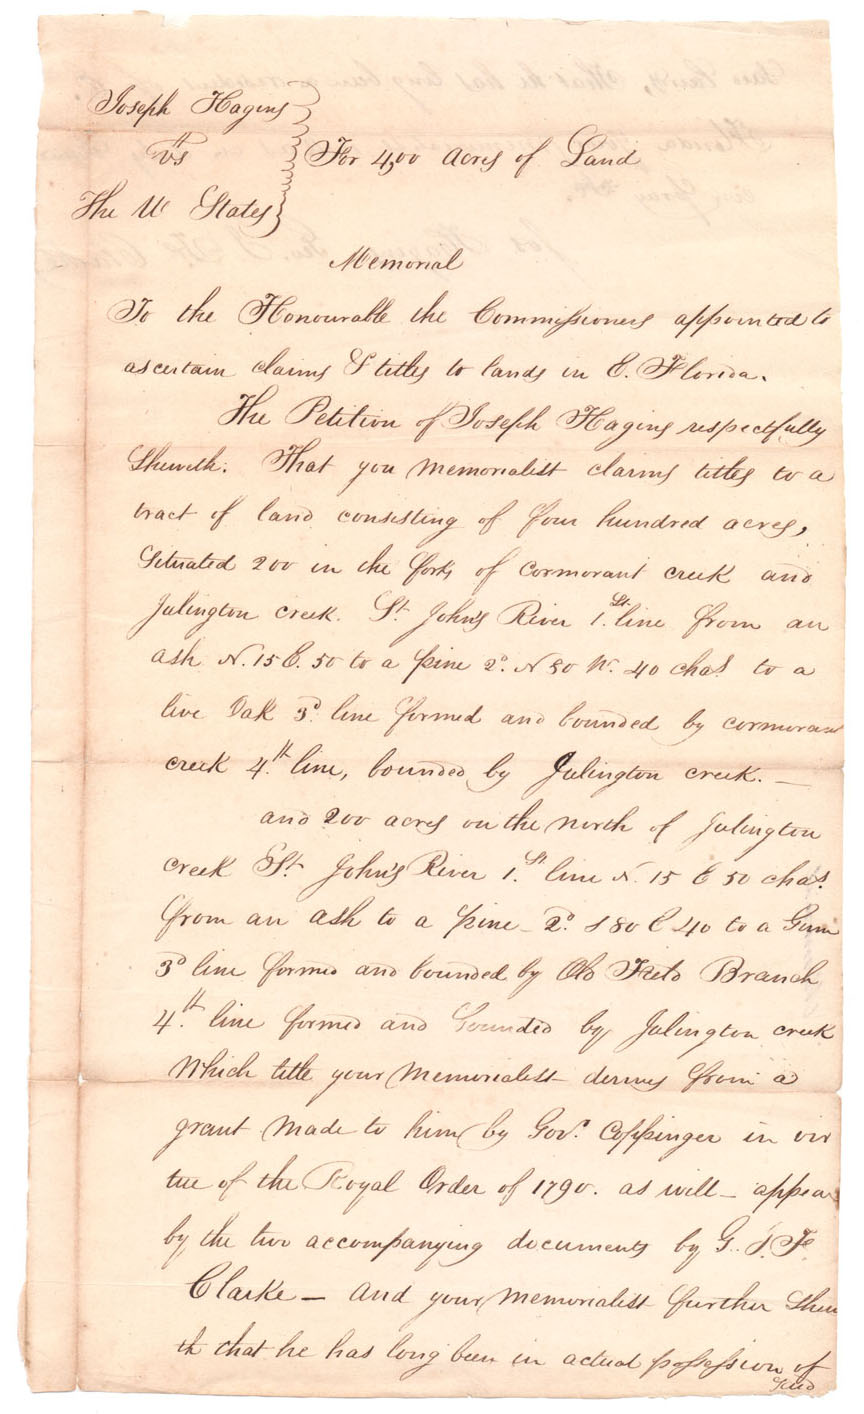 Joseph Hagins
vs
The U States
For 400 acres of Land
Memorial
To the Honourable the Commissioners appointed to
ascertain claims & titles to lands in E. Florida.
The Petition of Joseph Hagins respectfully
Sheweth. That you memorialist claims titles to a
tract of land consisting of four hundred acres,
Situated 200 in the forks of cormorant creek and
Julington creek. St. John's River 1.st line from an
ash N. 15 E. 50 to a pine 2d. N 80 W. 40 chas. to a
live Oak 3d. line formed and bounded by cormorant
creek 4.th line, bounded by Julington creek. —
and 200 acres on the north of Julington
creek St. John's River 1.st line N. 15 E 50 chas.
from an ash to a pine – 2d. S 80 E 40 to a Gum
3d line formed and bounded by Old Field Branch
4.th line formed and bounded by Julington creek
Which title your memorialist derives from a
grant made to him by Govr. Coppinger in vir
tue of the Royal Order of 1790. as will – appear
by the two accompanying documents by G. J. F.
Clarke — and your memorialist further Shew
th that he has long been in actual possession of
said